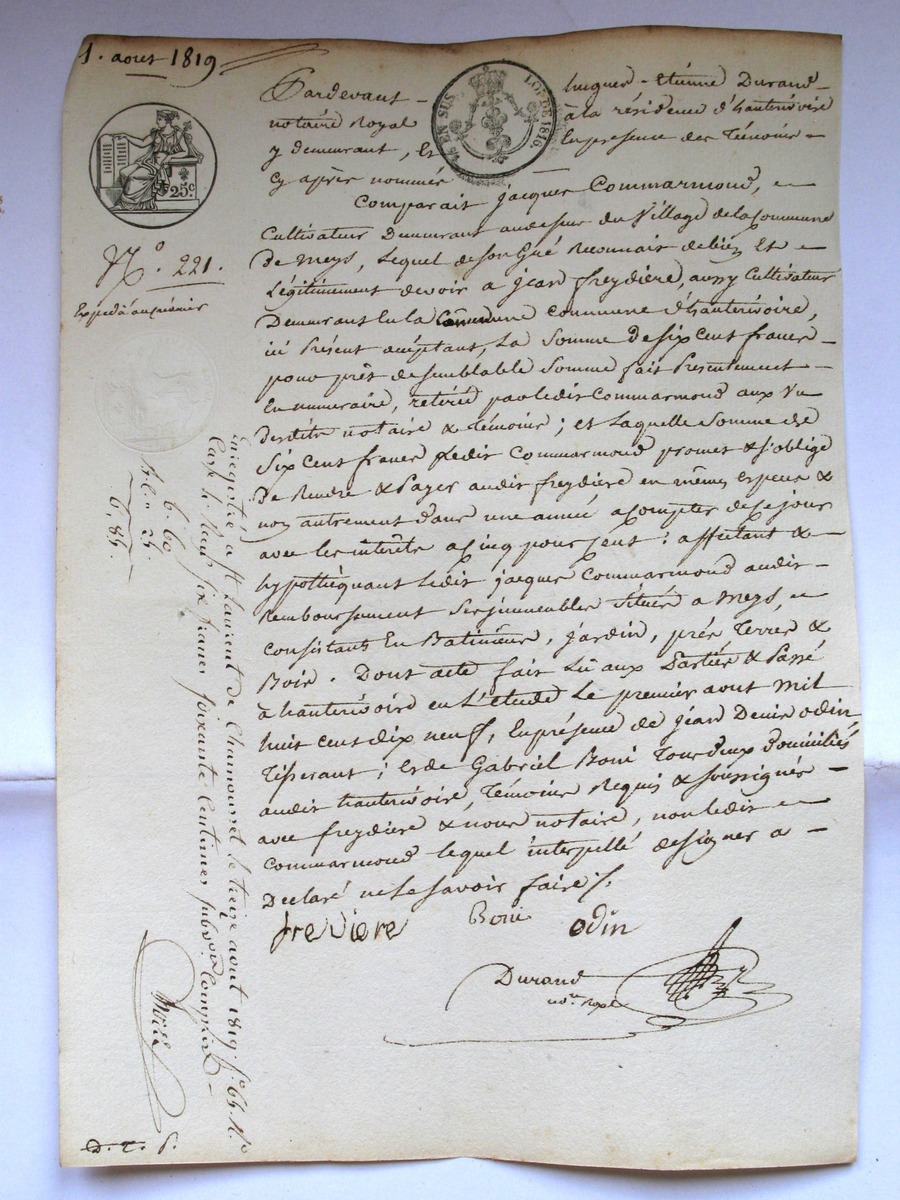 1. aout 1819
25c
EN SUS
LOI DE 1816
Pardevant hugues-Etienne Durand
notaire Royal à la résidence d'hauterivoire
y demeurant, Et En presence des Témoins
Cy après nommés
Comparait jacques Commarmond,
Cultivateur Demeurant audessus du Village de la Commune
De meys, Lequel de son Gré Reconnait debien Et
Légitimement devoir a jean freydiere, aussy Cultivateur
Demeurant En la commune d'hauterivoire,
ici Présent acéptant, La Somme de six Cent francs
pour prêt de semblable Somme fait Présentement
En numeraire, retiré par ledit Commarmond aux Vu
desdits notaire & Témoins ; et Laquelle Somme de
Six Cent francs ledit Commarmond promet & s'oblige
De Rendre & Payer audit freydiere en mêmes especes &
non autrement dans une année a compter de ce jour
avec les intérêts a Cinq pour Cent : affectant &
hypothéquant Ledit jacques Commarmond audit
Remboursement Ses immeubles Situés a Meys,
Consistants En Batiments, jardin, prés Terres &
Bois. Dont acte fait Lu aux Parties & Passé
à hauterivoire en L'étude Le premier aout Mil
huit cent dix neuf, En présence de jean Denis odin
Tisserant ; et de Gabriel Boni Tous deux domiciliés
audit hauterivoire, Témoins Requis & soussignés
avec freydiere & nous notaire, non ledit
Commarmond lequel interpellé de signer a
Declaré ne le savoir faire /.
freviere Boni odin
Durand
nore Royal
No. 221.
Expedié au premier
6. 60
6. 8
Enregistré a st Laurent de Chamousset le treize aout 1819. fo 64. Ro
Case 4. Reçu six francs soixante Centimes subvon Comprise
D. T. P.